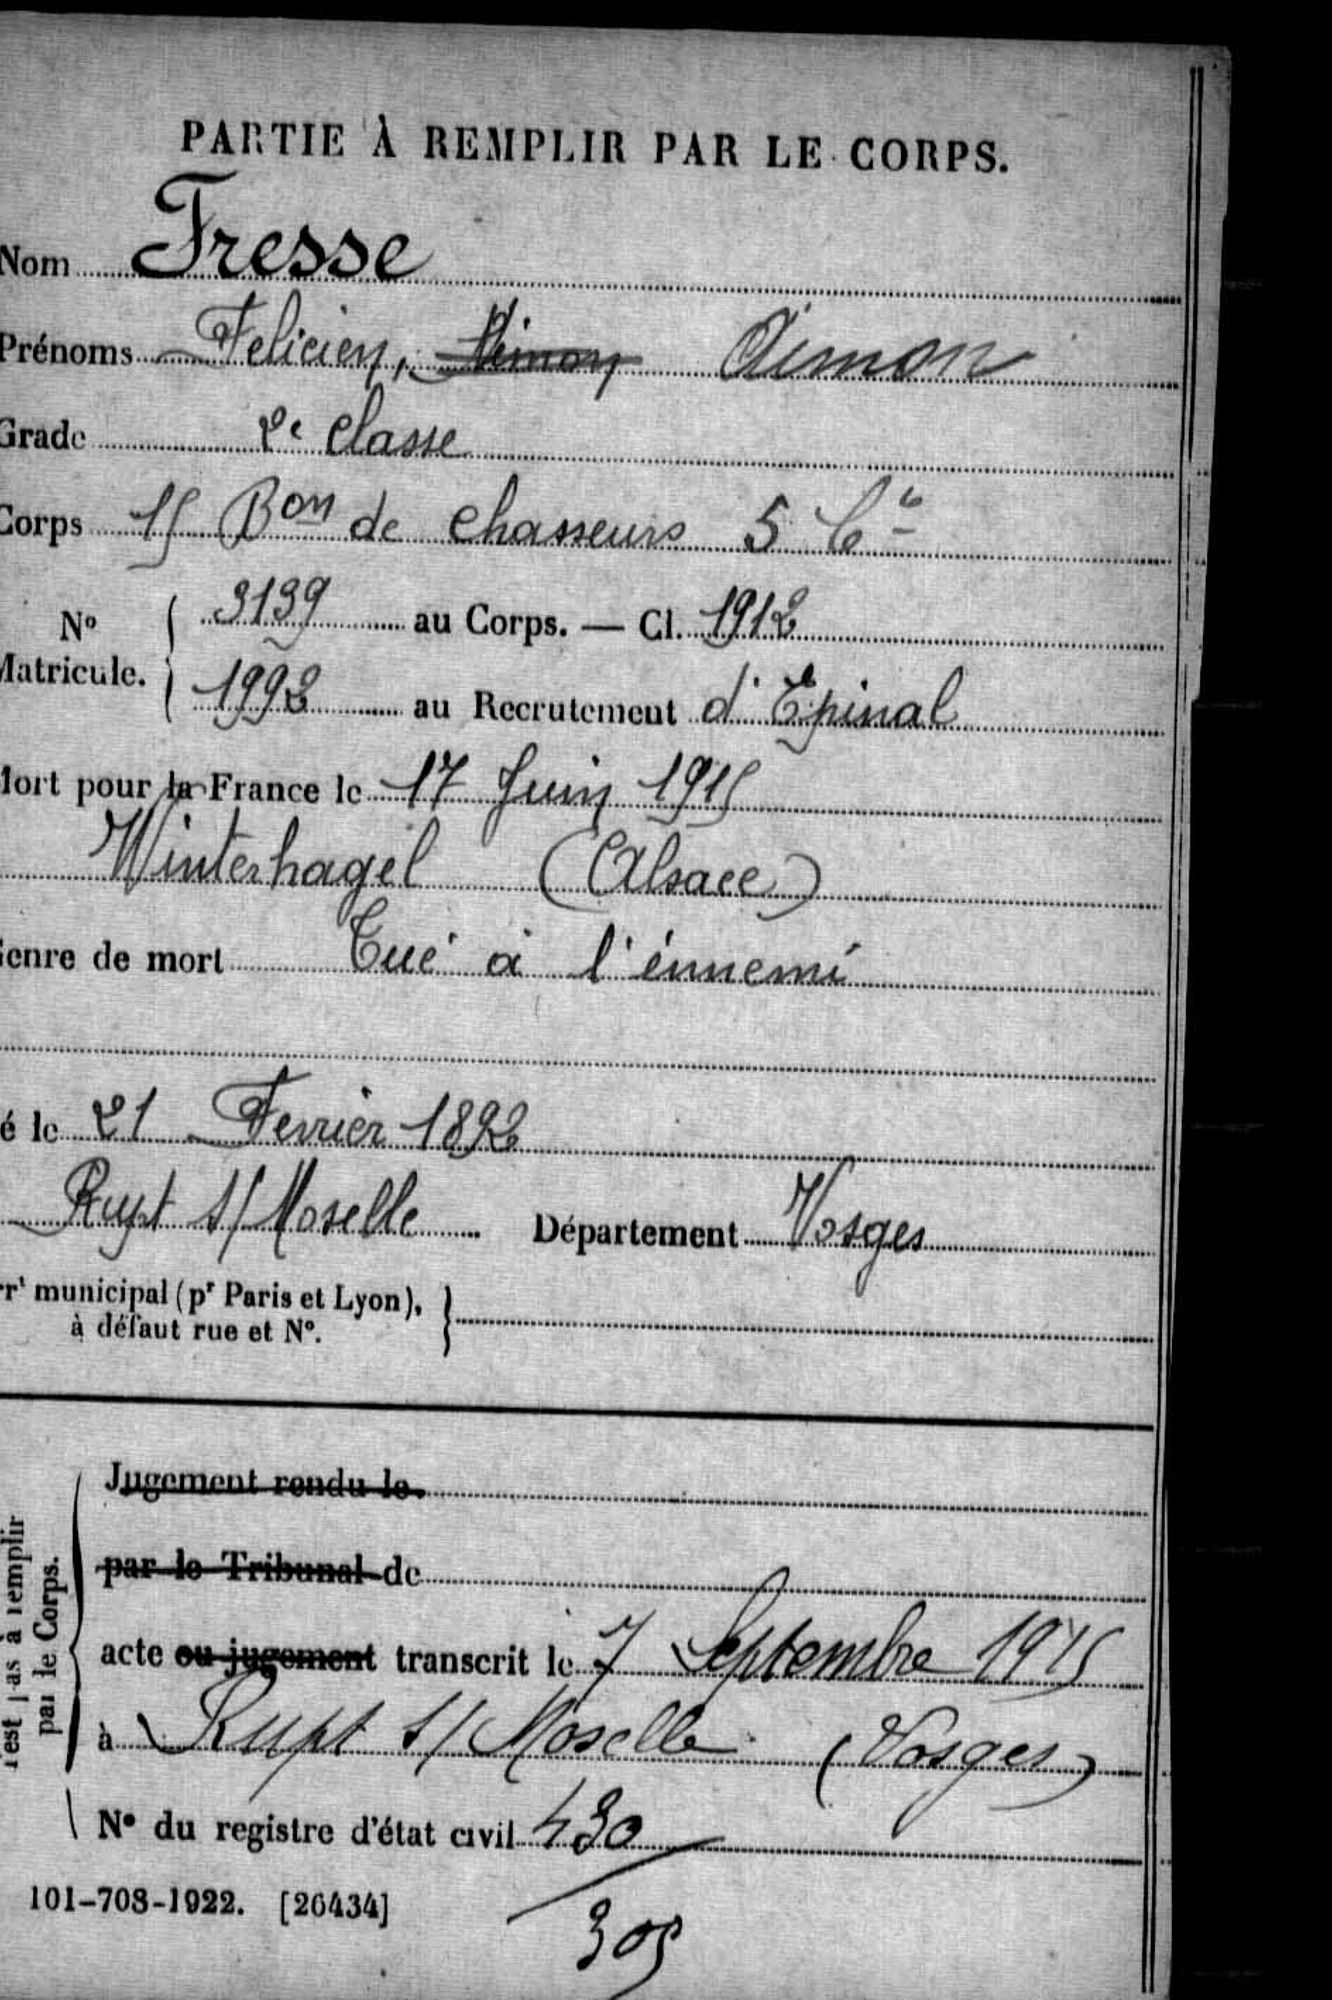 PARTIE À REMPLIR PAR LE CORPS.
Nom Fresse
Prénoms Felicien, Aimon Aimon
Grade 2e classe
Corps 15 Bon de chasseurs 5 Cie
No Matricule. 3139 au Corps. — Cl. 1912
1992 au Recrutement d'Epinal
Mort pour la France le 17 Juin 1915
Winterhagel (Alsace)
Genre de mort Tué à l'énnemi
é le 21 Fevrier 1892
Rupt s/Moselle Département Vosges
rt municipal (pr Paris et Lyon),
à défaut rue et No.
Jugement rendu le
par le Tribunal de
acte ou jugement transcrit le 7 Septembre 1915
à Rupt s/Moselle (Vosges)
No du registre d'état civil 430
101-708-1922. [26434]
305
est pas à remplir
par le Corps.